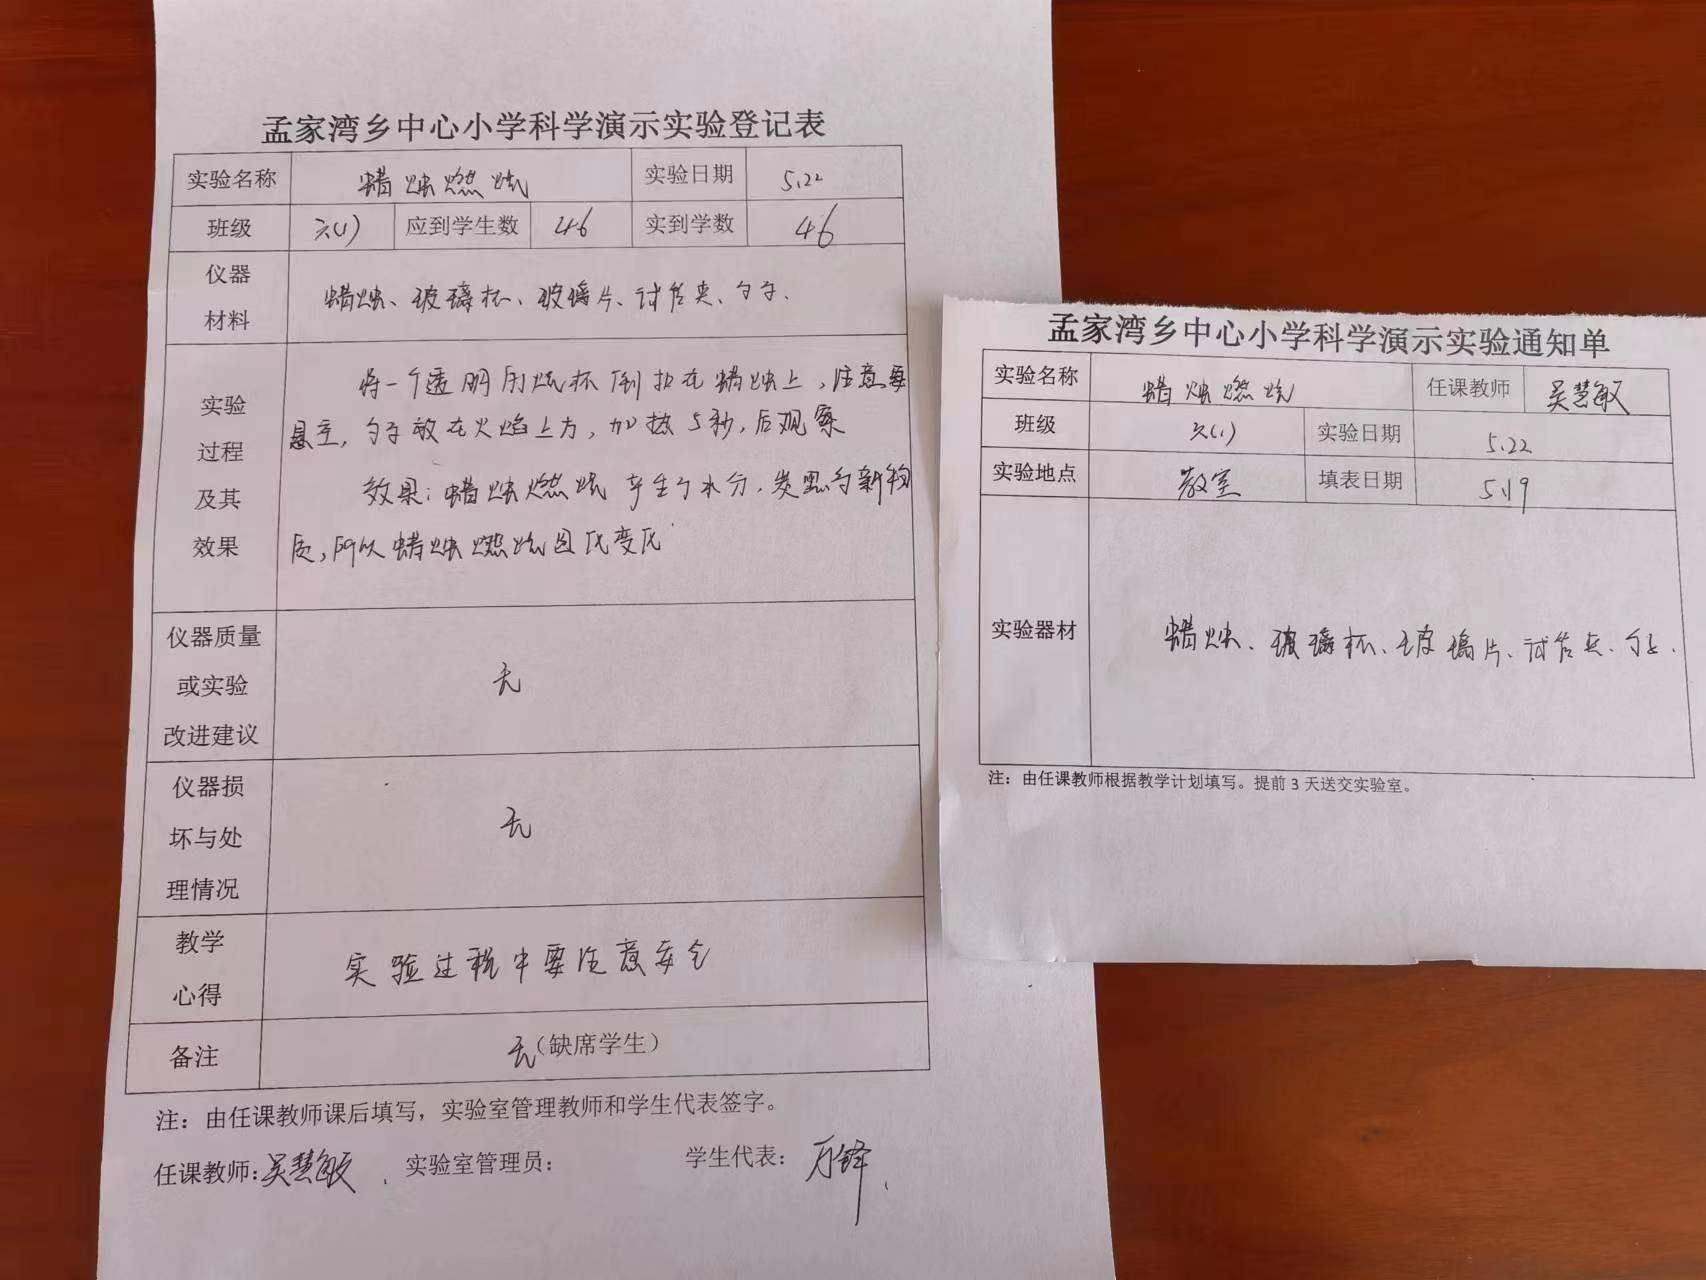 孟家湾乡中心小学科学演示实验登记表
实验名称 蜡烛燃烧 实验日期 5.22
班级 六(1) 应到学生数 46 实到学数 46
仪器
材料
蜡烛、玻璃杯、玻璃片、试管夹、勺子.
实验
过程
及其
效果
将一个透明的烧杯倒扣在蜡烛上,注意要
悬空,勺子放在火焰上方,加热5秒,后观察
效果:蜡烛燃烧产生了水分、炭黑的新物
质,所以蜡烛燃烧
仪器质量
或实验
改进建议
无
仪器损
坏与处
理情况
无
教学
心得
实验过程中要注意安全
备注 无(缺席学生)
注:由任课教师课后填写,实验室管理教师和学生代表签字。
任课教师:吴慧敏 实验室管理员: 学生代表:万锋
孟家湾乡中心小学科学演示实验通知单
实验名称 蜡烛燃烧 任课教师 吴慧敏
班级 六(1) 实验日期 5.22
实验地点 教室 填表日期 5.19
实验器材 蜡烛、玻璃杯、玻璃片、试管夹、勺子.
注:由任课教师根据教学计划填写。提前3天送交实验室。